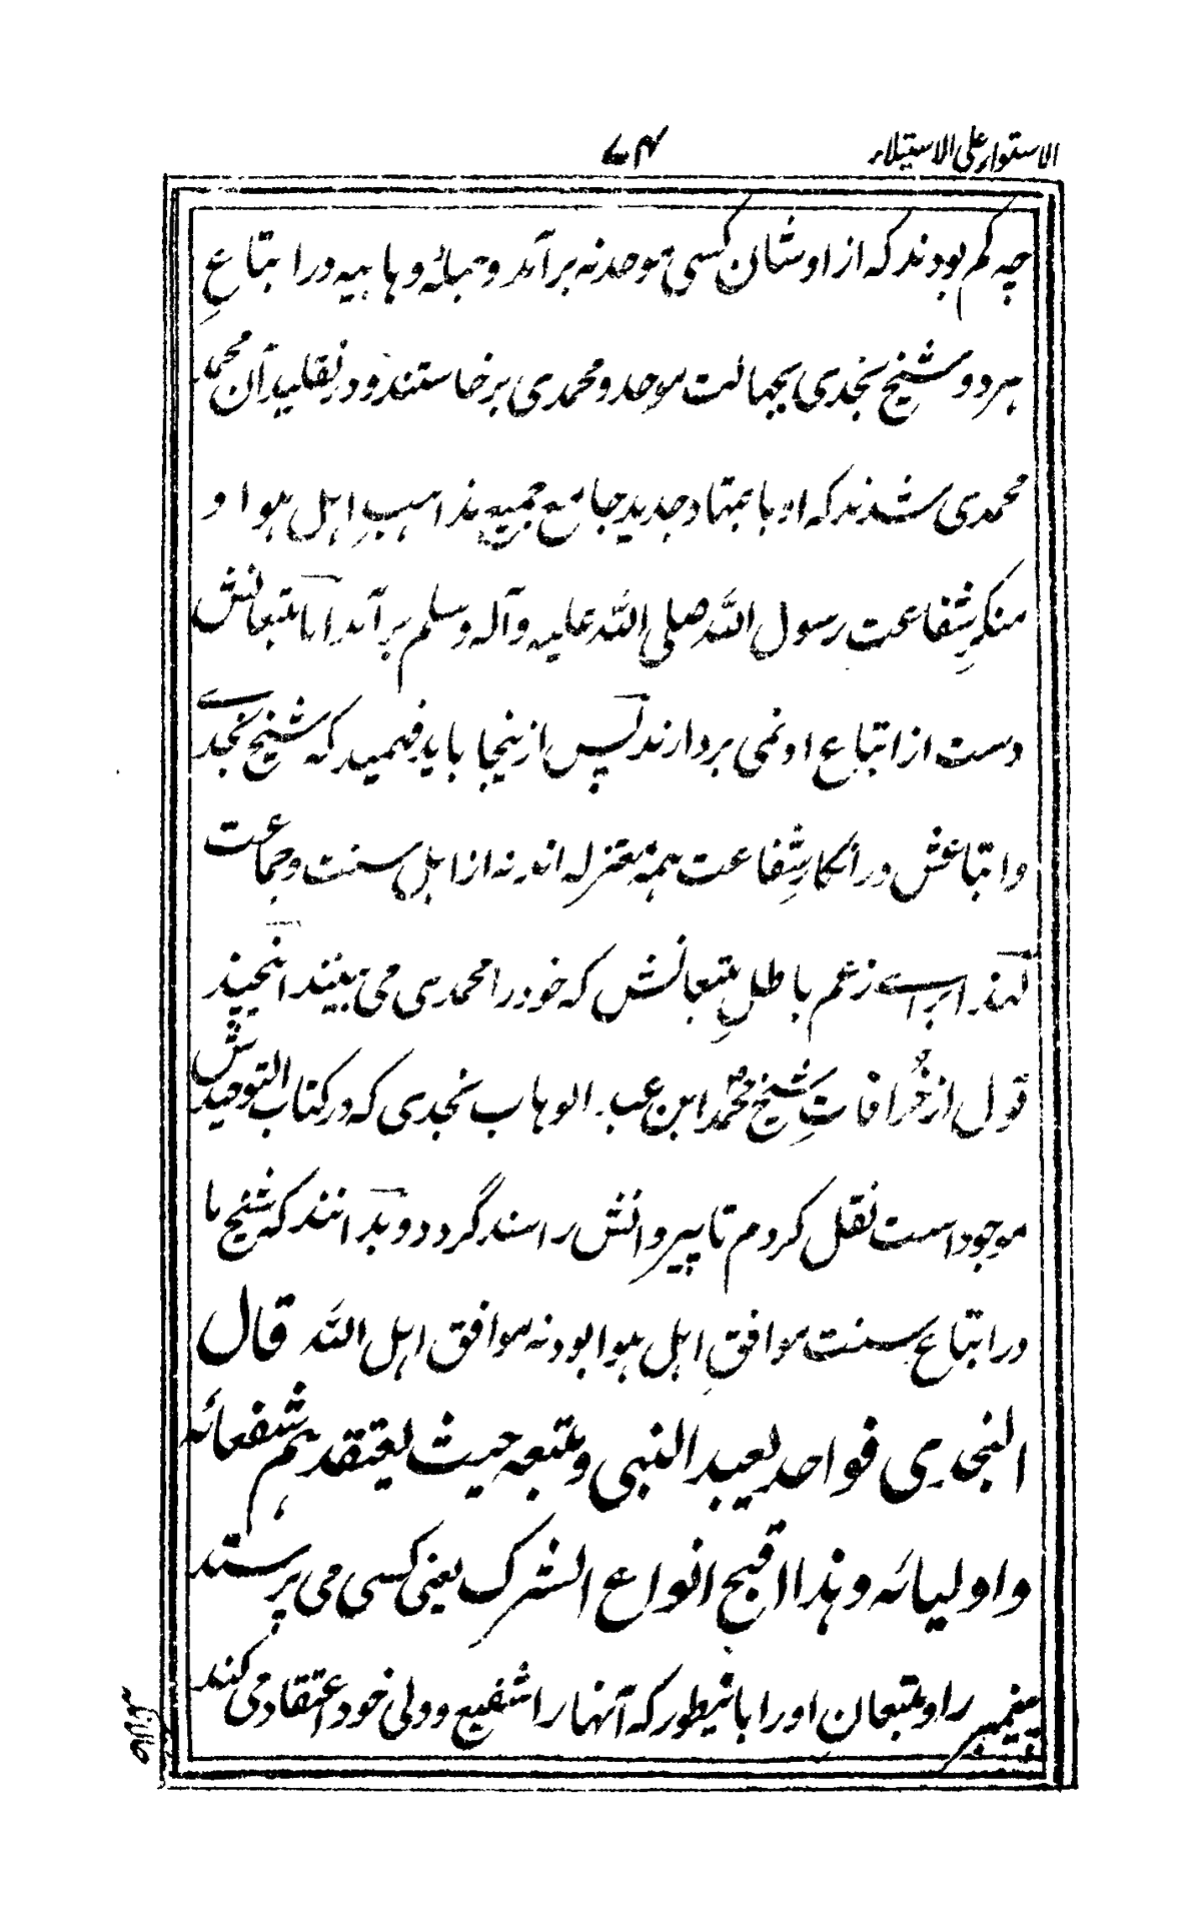 الاستواء علی الاستیلاء
۷۴
چه کم بودند که از اوشان کسی موحد نه برآمد و همه وهابیه در اتباعِ
هر دو شیخ نجدی بجهالت موحد و محمدی برخاستند و در تقلید آن محمد
محمدی شدند که او باجتهاد جدید جامع جمیع مذاهبِ اهل هوا و
منکرِ شفاعت رسول الله صلی الله علیه وآله وسلم برآمد اما متبعانش
دست از اتباع او نمی بردارند پس ازینجا باید فهمید که شیخ نجدے
و اتباعش در انکارِ شفاعت همه معتزله اند نه از اهل سنت وجماعت
لهذا براے زعم باطلِ متبعانش که خود را محمدی می بینند اینچند
قول از خُرافاتِ شیخ محمد ابن عبد الوهاب نجدی که در کتاب التوحیدش
موجود است نقل کردم تا پیروانش را سند گردد و بدانند که شیخ ما
در اتباعِ سنت موافقِ اهل هوا بود نه موافق اهل الله قال
النجدی فواحد یعبد النبی و متبعه حیث یعتقدهم شفعائه
و اولیائه وهذا اقبح انواع الشرک یعنی کسی می پرستد
پیغمبر را و متبعان او را باینطور که آنها را شفیع و ولی خود اعتقاد می کند